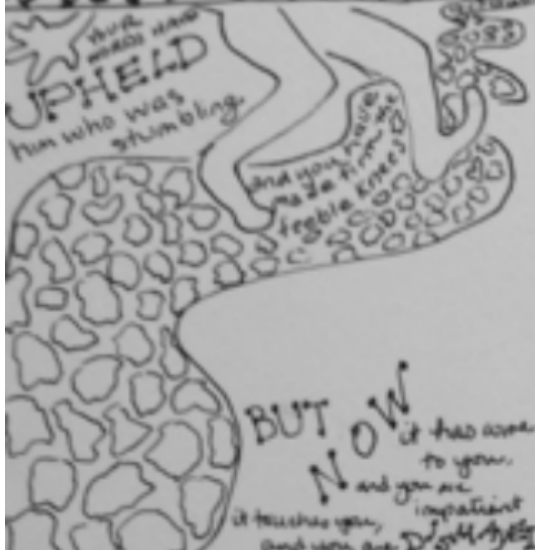 YOUR
WORDS HAVE
UPHELD
him who was
stumbling.
and you have
made firm the
feeble knees
BUT NOW
it has come
to you.
and you are
impatient
it touches you,
and you are DISMAYED